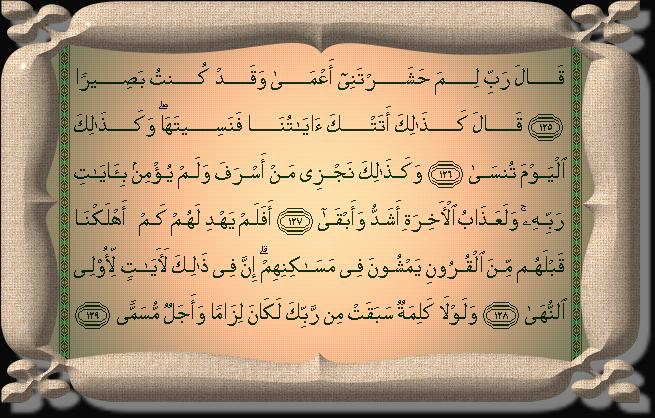 قَالَ رَبِّ لِمَ حَشَرْتَنِىٓ أَعْمَىٰ وَقَدْ كُنتُ بَصِيرًا
١٢٥ قَالَ كَذَٰلِكَ أَتَتْكَ ءَايَـٰتُنَا فَنَسِيتَهَا ۖ وَكَذَٰلِكَ
ٱلْيَوْمَ تُنسَىٰ ١٢٦ وَكَذَٰلِكَ نَجْزِى مَنْ أَسْرَفَ وَلَمْ يُؤْمِنۢ بِـَٔايَـٰتِ
رَبِّهِۦ ۚ وَلَعَذَابُ ٱلْـَٔاخِرَةِ أَشَدُّ وَأَبْقَىٰٓ ١٢٧ أَفَلَمْ يَهْدِ لَهُمْ كَمْ أَهْلَكْنَا
قَبْلَهُم مِّنَ ٱلْقُرُونِ يَمْشُونَ فِى مَسَـٰكِنِهِمْ ۗ إِنَّ فِى ذَٰلِكَ لَـَٔايَـٰتٍ لِّأُو۟لِى
ٱلنُّهَىٰ ١٢٨ وَلَوْلَا كَلِمَةٌ سَبَقَتْ مِن رَّبِّكَ لَكَانَ لِزَامًا وَأَجَلٌ مُّسَمًّى ١٢٩